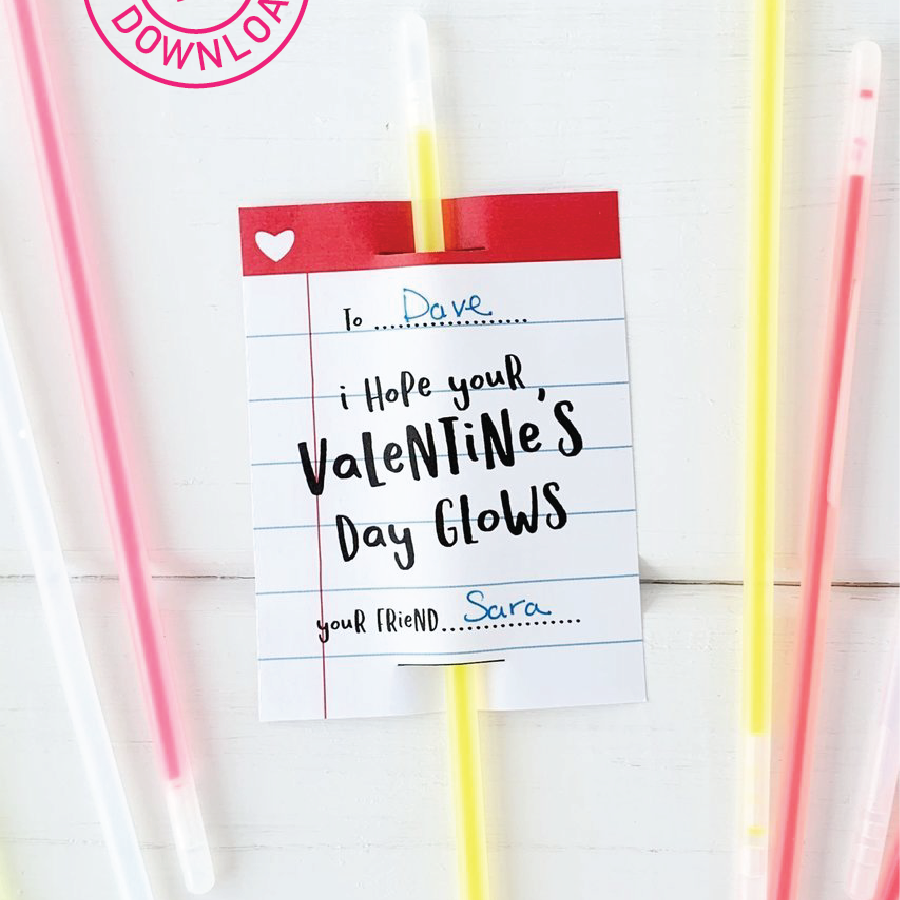 DOWNLOA
To Dave
i HoPe youR
VaLeNTiNe'S
Day GLoWS
youR FRieND Sara